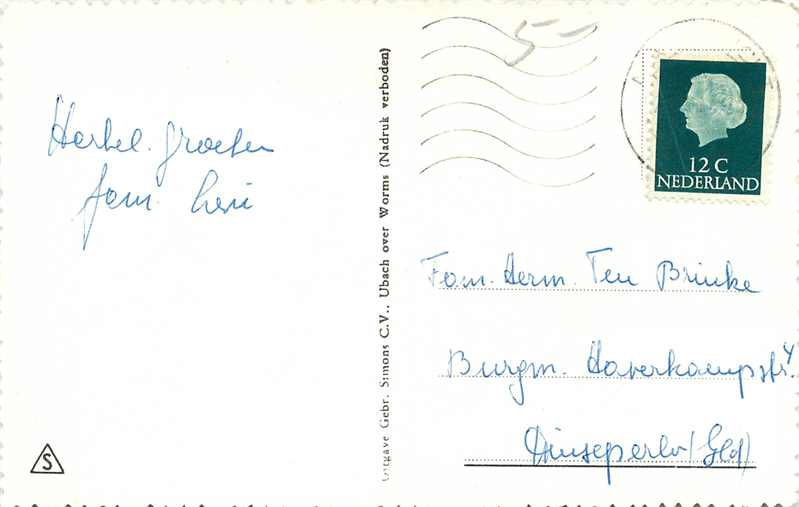 Hartel. groeten
fam. Levi
Uitgave Gebr. Simons C.V., Ubach over Worms (Nadruk verboden)
5-
12 C
NEDERLAND
Fam. Herm. Ten Brinke
Burgm. Haverkampstr. 4
Dinxperlo (Gld)
S